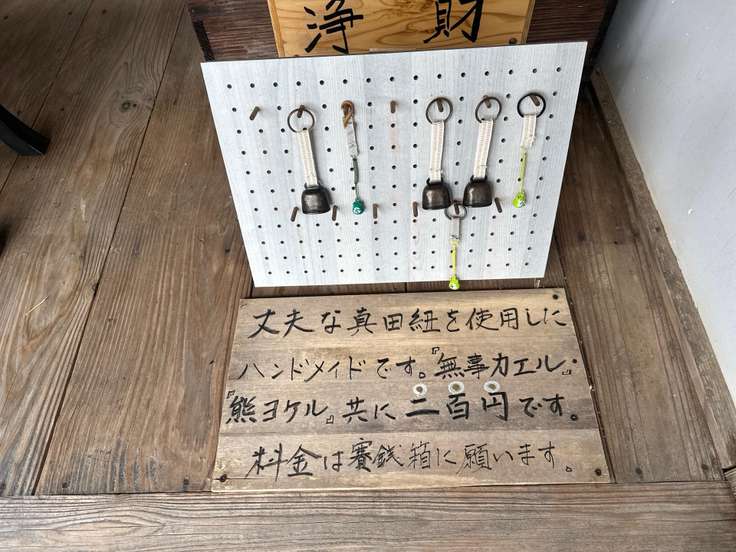 浄財
丈夫な真田紐を使用した
ハンドメイドです。『無事カエル』
『熊ヨケル』共に二百円です。
料金は賽銭箱に願います。